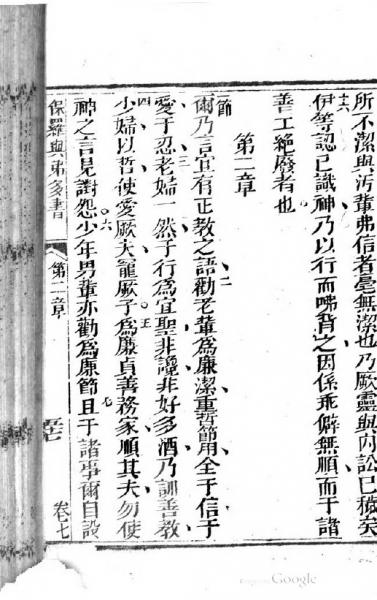 所不潔與汚輩弗信者毫無潔也乃厥靈與內訟已穢矣
十六
伊等認已識神乃以行而咈背之因係乖僻無順而于諸
善工絕廢者也
第二章
節
爾乃言宜有正教之語勸老輩為廉潔重哲節用全于信于
二
愛于忍老婦一然于行為宜聖非讒非好多酒乃訓善教
三
少婦以哲使愛厥夫寵厥子為廉貞善務家順其夫勿使
四 五
神之言見對怨少年男輩亦勸為廉節且于諸事爾自設
六 七
保羅與弟多書 第二章 卷七
Google